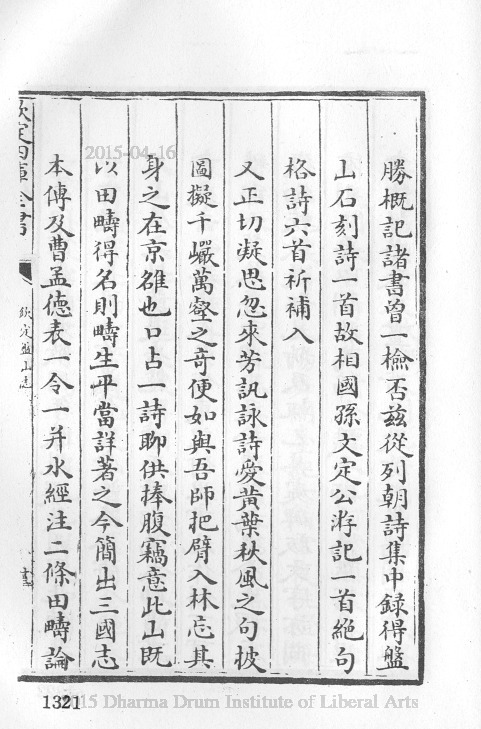 勝概記諸書曽一檢否茲從列朝詩集中録得盤
山石刻詩一首故相國孫文定公游記一首絶句
格詩六首祈補入
又正切凝思忽來芳訊詠詩愛黄葉秋風之句披
圖擬千巗萬壑之竒便如與吾師把臂入林忘其
身之在京雒也口占一詩聊供捧腹竊意此山既
以田疇得名則疇生平當詳著之今簡出三國志
本傳及曹孟德表一令一并水經注二條田疇論
欽定四庫全書
欽定盤山志
2015-04-16
1321
2015 Dharma Drum Institute of Liberal Arts